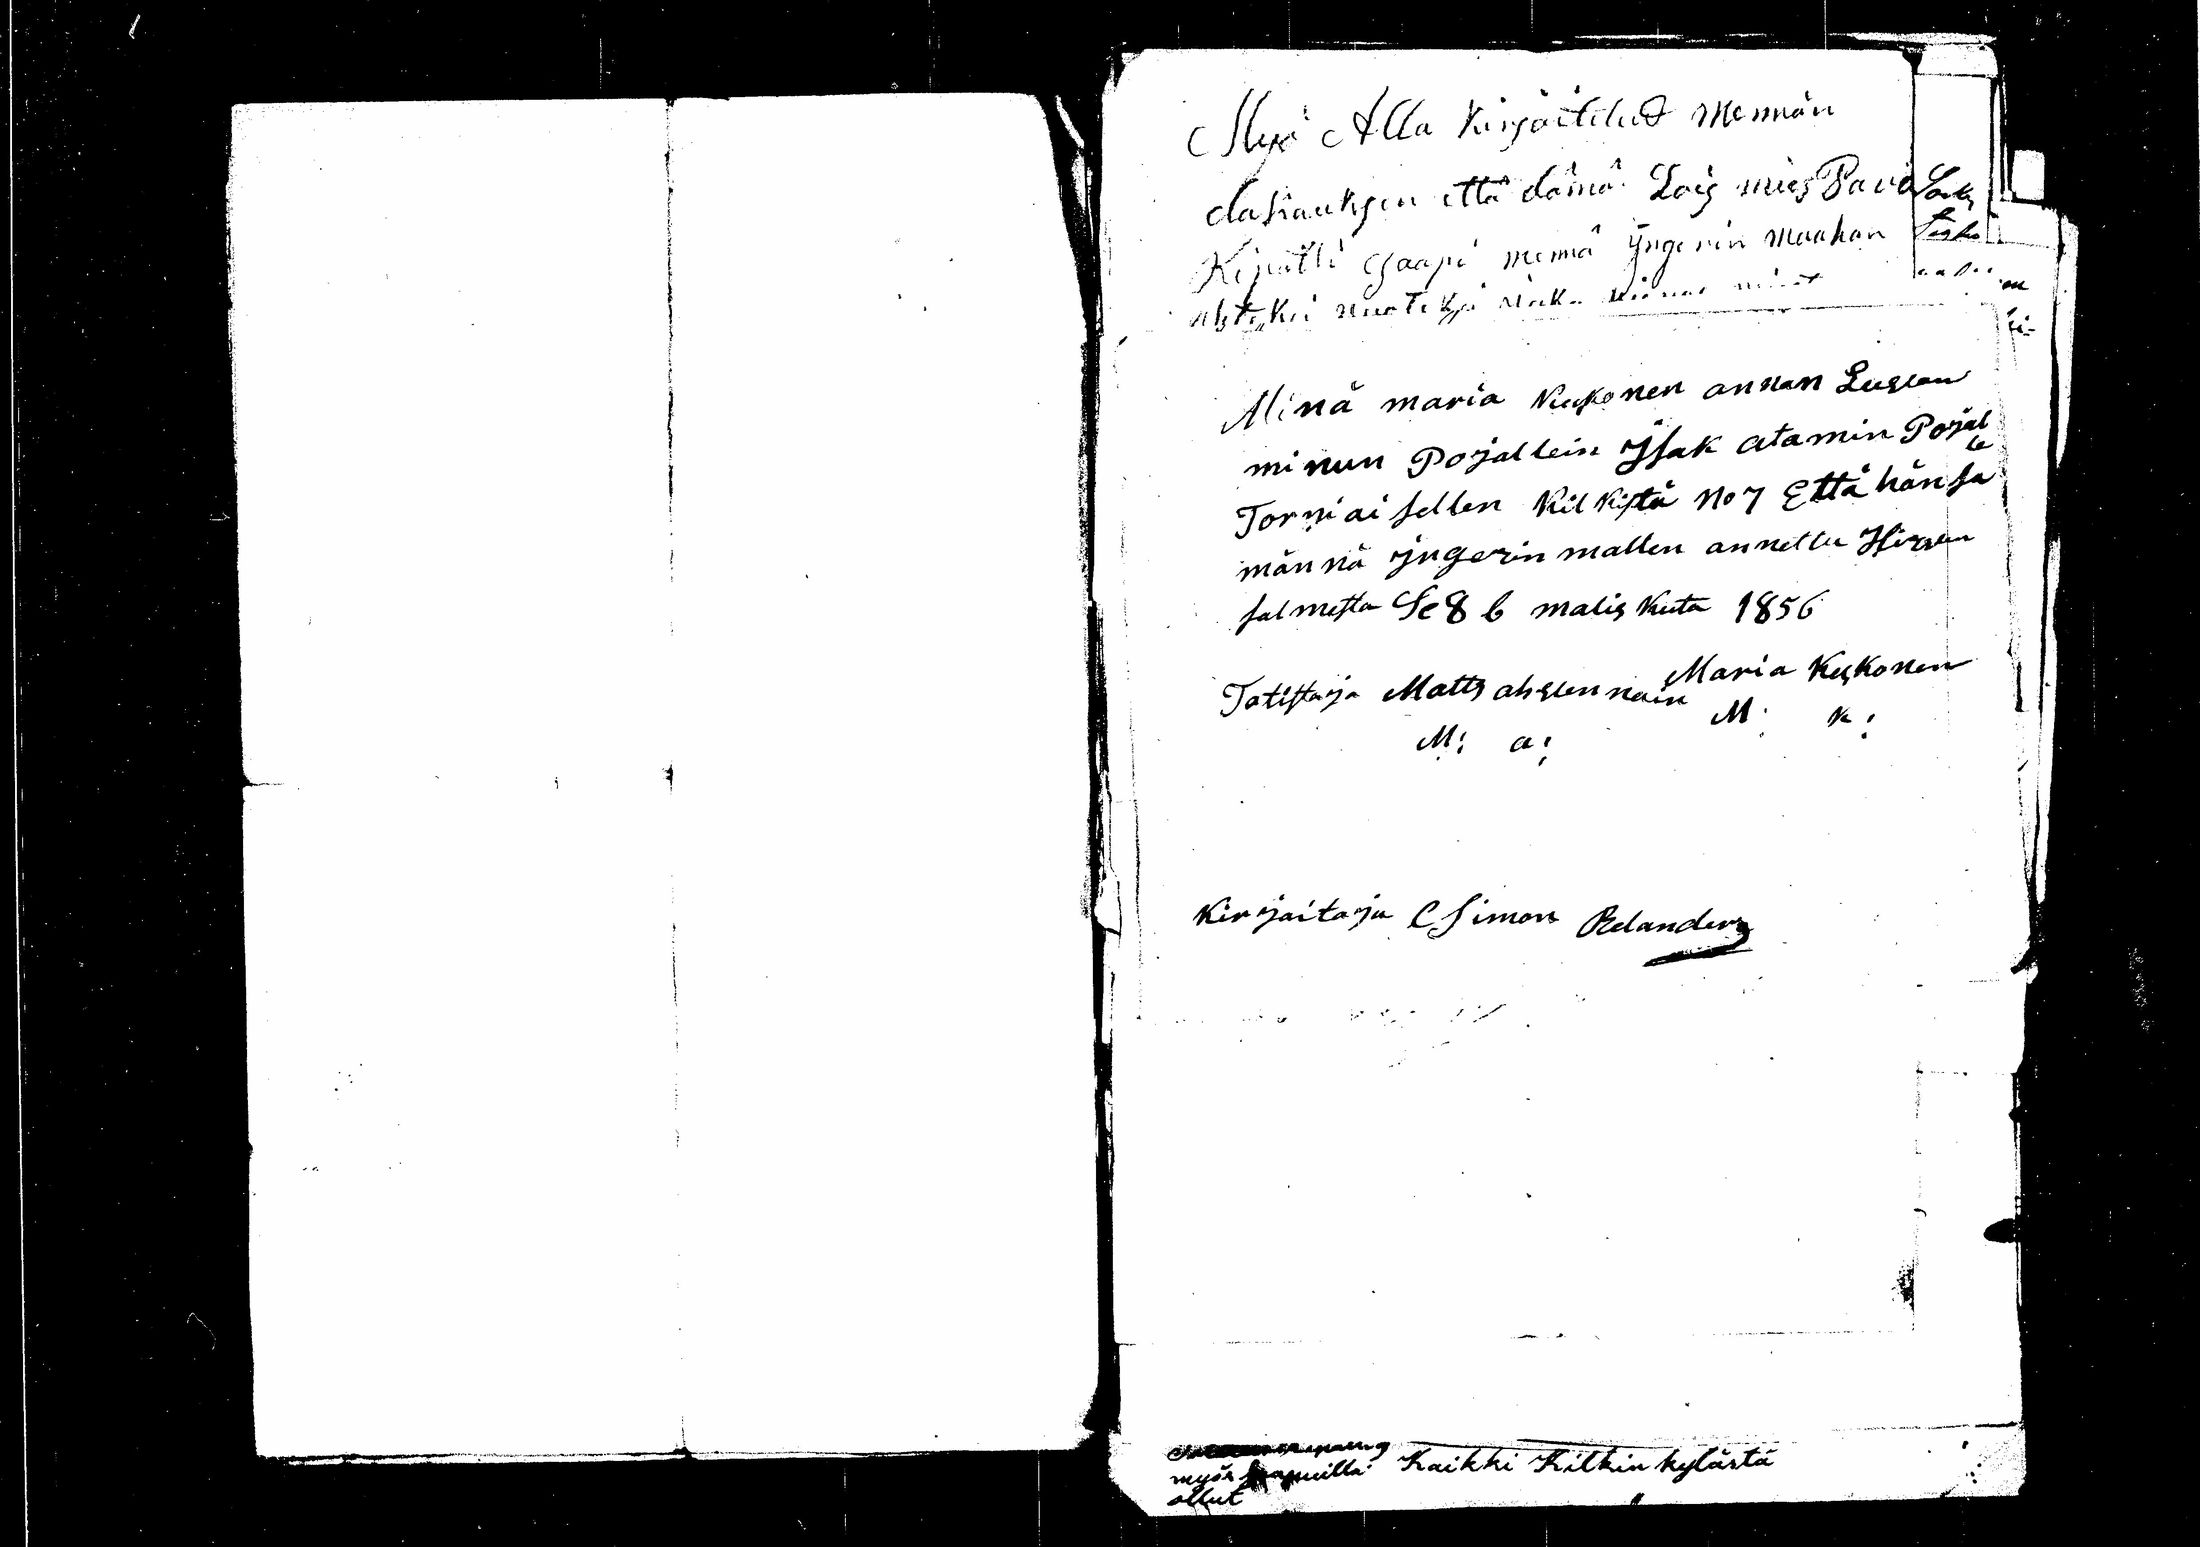 Myö Alla Kirjoitelud Mennän
dahauksen että dämä Lois mies Pavo
Kipatti Saapi mennä jngerin maahan
Minä maria Kukonen annan Luvan
minun Pojallein jsak atamin Pojal
le
Torniaisellen Kilkistä No 7 Että hän sa
männä jngerin mallen annettu Hirven
salmesta Se 8 b malis kuta 1856
Totistaja Matts ahslennain Maria Kukonen
M: a: M: K:
Kirjoitaja Simon Relander
myös saapuilla Kaikki Kilkin kylästä
ollut